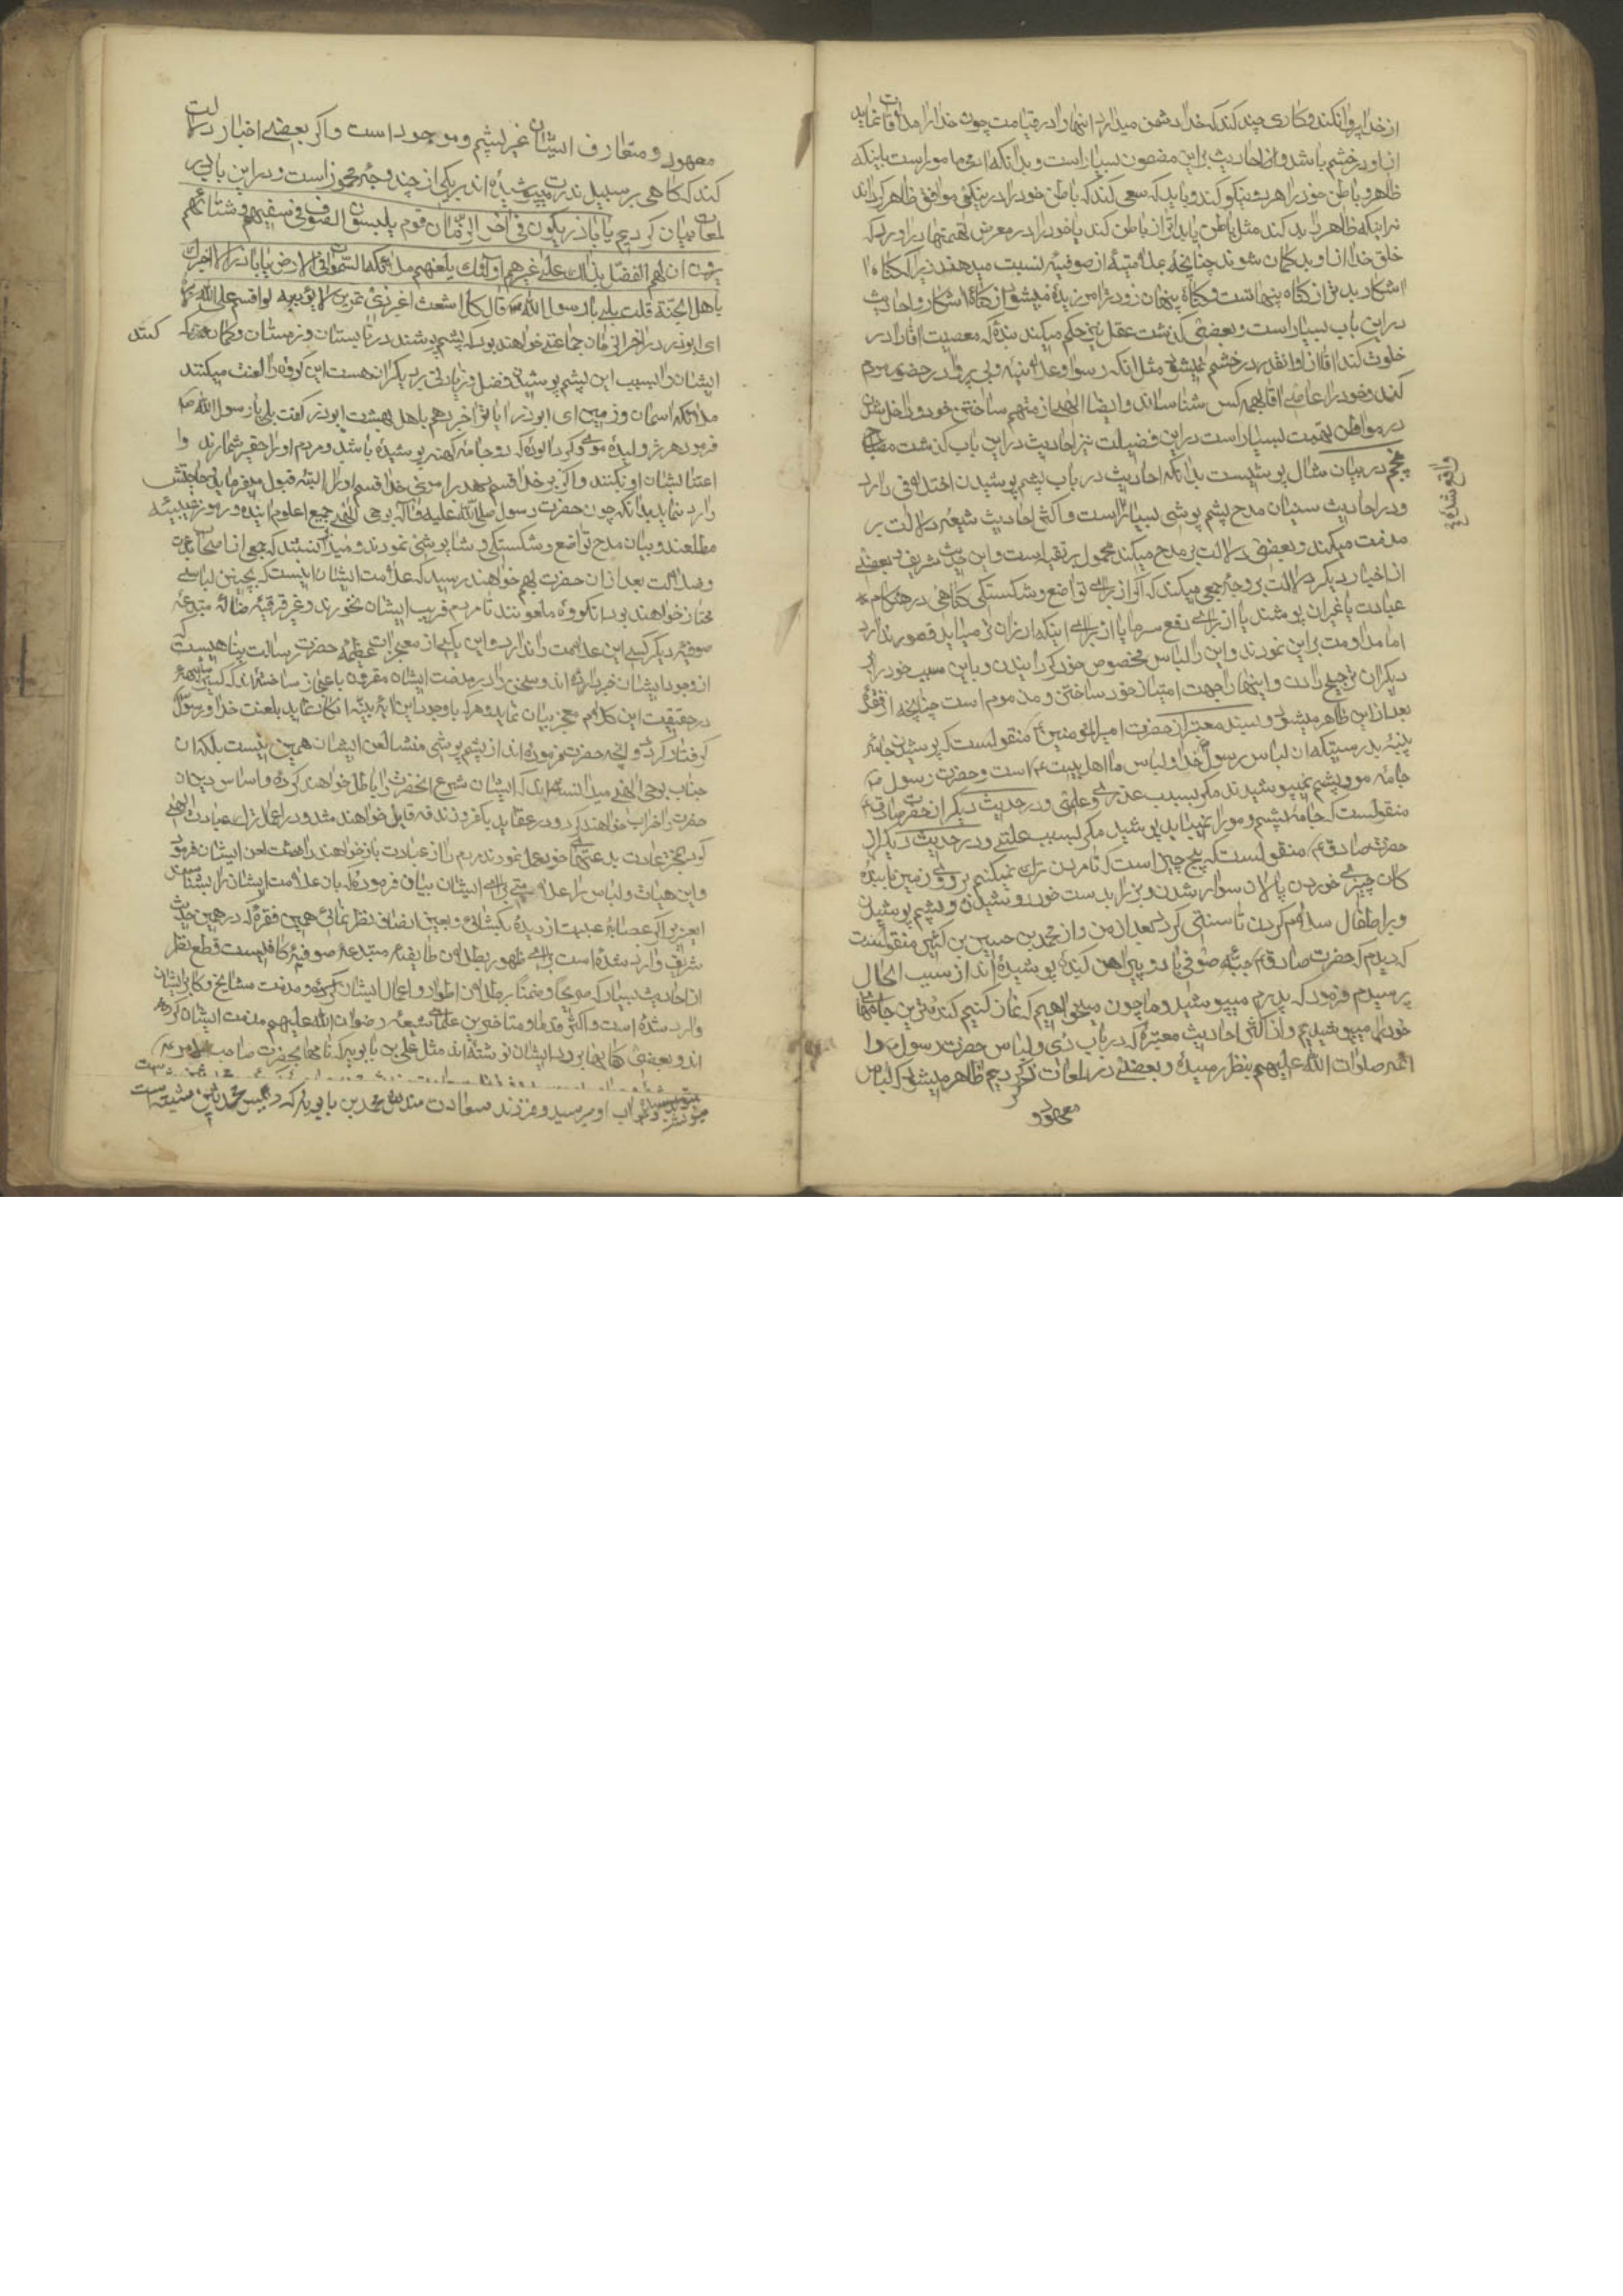 از خدا پروا نکند و کاری چند کند که خدا دشمن میدارد انها را در قیامت چون خدا را ملاقات نماید
از او در خشم باشد و از احادیث براین مضمون بسیار است و بدانکه ادمی مامور است باینکه
ظاهر و باطن خود را هر دو نیکو کند و باید که سعی کند که باطن خود را در نیکوئی موافق ظاهر کرداند
نه اینکه ظاهر را بد کند مثل باطن یا بدتر از باطن کند یا خود را در معرض تهمتها در اورد که
خلق خدا از او بد کمان شوند چنانچه بملامتیه از صوفیه نسبت میدهند زیرا که کناه
اشکار بدتر از کناه پنهانست و کناه پنهان زودتر امرزیده میشود از کناه اشکار و احادیث
در این باب بسیار است و بعضی کذشت عقل نیز حکم میکند بنده که معصیت اقا را در
خلوت کند اقا از او انقدر در خشم نمیشود مثل انکه رسوا و علانیه و بی پروا در حضور مردم
کند و خود را عاصی اقا بهمه کس شناساند و ایضا النهی از متهم ساختن خود و داخل شدن
در مواطن تهمت بسیار است در این فضیلت نیز احادیث در این باب کذشت مصباح
پنجم در بیان مثال پوشیست بدانکه احادیث در باب پشم پوشیدن اختلافی دارد
واقع شده
و در احادیث سنیان مدح پشم پوشی بسیار است و اکثر احادیث شیعه دلالت بر
مذمت میکند و بعضی دلالت بر مدح میکند محمول بر تقیه است و این حدیث شریف و بعضی
از اخبار دیکر دلالت بر وجه جمعی میکند که اکر از برای تواضع و شکستکی کاهی در هنکام
عبادت یا غیران پوشند یا از برای دفع سرما یا از برای اینکه ارزان تر میباید قصور ندارد
اما مداومت براین نمودند و این را لباس مخصوص خود کردانیدن و باین سبب خود را بر
دیکران ترجیح دادن و اینها را جهت امتیاز خود ساختن و مذموم است چنانچه از فقره
بعد از این ظاهر میشود و بسند معتبر از حضرت امیرالمومنین ع منقولست که پوشیدن جامه
پنبه بدرستیکه ان لباس رسول خدا و لباس ما اهل بیت ع است و حضرت رسول ص
جامه مو و پشم نمیپوشیدند مکر بسبب عذری و علتی و در حدیث دیکر از حضرت صادق ع
منقولست که جامه پشم و مو را نمیباید پوشید مکر بسبب علتی و در حدیث دیکر از
حضرت صادق ع منقولست که پنج چیز است که تا مردن ترک نمیکنم بر روی زمین با بنده
کان چیزی خوردن پالان سوار شدن و بز را بدست خود دوشیدن و پشم پوشیدن
و بر اطفال سلام کردن تا سنتی کردد بعد از من و از محمد بن حسین بن کثیر منقولست
که دیدم که حضرت صادق ع جبه صوفی با دو پیراهن کنده پوشیده اند از سبب الحال
پرسیدم فرمود که پدرم میپوشید و ما چون میخواهیم که نماز کنیم کنده ترین جامهای
خود را میپوشیدیم و از اکثر احادیث معتبره که در باب زی و لباس حضرت رسول ص و
ائمه صلوات الله علیهم بنظر رسیده و بعضی در لمعات ذکر کردیم ظاهر میشود که لباس
معهود و
معهود و متعارف ایشان غیر پشم و مو جود است و اکر بعضی اخبار دلالت
کند که کاهی بر سبیل ندرت میپوشیده اند بر یکی از چند وجه محموز است و در این باب در
لمعات بیان کردیم یا باذر یکون فی اخر الزمان قوم یلبسون الصوف فی صیفهم و شتائهم
یرون ان لهم الفضل بذلک علی غیرهم اولئک یلعنهم ملائکة السموات و الارض یا باذر الا اخبرک
باهل الجنة قلت بلی یا رسول الله ص قال کل اشعث اغبر ذی طمرین لا یؤبه به لو اقسم علی الله لابره
ای ابوذر در اخر الزمان جماعتی خواهند بود که پشم پوشند در تابستان و زمستان و کمان کنند که
ایشان را بسبب این پشم پوشیدن فضل و زیادتی بر دیکران هست این کروه را لعنت میکنند
ملائکه اسمان و زمین ای ابوذر ایا تو را خبر دهم باهل بهشت ابوذر کفت بلی یا رسول الله ص
فرمود هر ژولیده موی کرد الوده که دو جامه کهنه پوشیده باشد و مردم او را حقیر شمارند و
اعتنا بشان او نکنند و اکر بر خدا قسم بدهد در امری خدا قسم او را البته قبول میفرماید و حاجتش
را رد ننماید بدانکه چون حضرت رسول صلی الله علیه و آله بوحی الهی جمیع علوم اینده و رموز غیبیه
مطلعند و بیان مدح تواضع و شکستکی و شال پوشی نمودند و میدانستند که جمعی از اصحاب بدعت
و ضلالت بعد از ان حضرت بهم خواهند رسید که علامت ایشان اینست که بچنین لباسی
ممتاز خواهند بود انکروه ملعونند تا مردم فریب ایشان نخورند و غیر فرقه ضاله مبتدعه
صوفیه دیکر کسی این علامت را ندارد و این یکی از معجزات عظیمه حضرت رسالت پناهیست که
از وجود ایشان خبر داده اند و سخن را در مذمت ایشان مقرون باعجاز ساخته اند که کسی را شبهه
در حقیقت این کلام معجز بیان نماید و هرکه باوجود این ایه بینه انکار نماید بلعنت خدا و رسول
کرفتار کردد و انچه حضرت فرموده اند از پشم پوشی منشا لعن ایشان همین نیست بلکه ان
جناب بوحی الهی میدانسته اند که ایشان شرع انحضرت را باطل خواهند کرد و اساس دین ان
حضرت را خراب خواهند کرد و در عقاید بکفر و زندقه قایل خواهند شد و در اعمال ترک عبادت الهی
کرده بمخترعات بدعتهای خود عمل نموده مردم را از عبادت باز خواهند داشت لعن ایشان فرمود
و این هیات و لباس را علامتی برای ایشان بیان فرمود که بان علامت ایشان را بشناسند
ایعزیز اکر عصابه عصبیت از دیده بکشائی و بعین انصاف نظر نمائی همین فقره که در همین حدیث
شریف وارد شده است برای ظهور بطلان طایفه مبتدعه صوفیه کافیست قطع نظر
از احادیث بسیار که صریحا و ضمنا بر بطلان اطوار و اعمال ایشان کرده و مذمت مشایخ و کابر ایشان
وارد شده است و اکثر قدما و متاخرین علمای شیعه رضوان الله علیهم مذمت ایشان کرده
اند و بعضی کتابها بر رد ایشان نوشته اند مثل علی بن بابویه که نامها بحضرت صاحب الامر ع
مینوشته و جواب او میرسید و فرزند سعادتمندش محمد بن بابویه که رئیس محدثین شیعه است